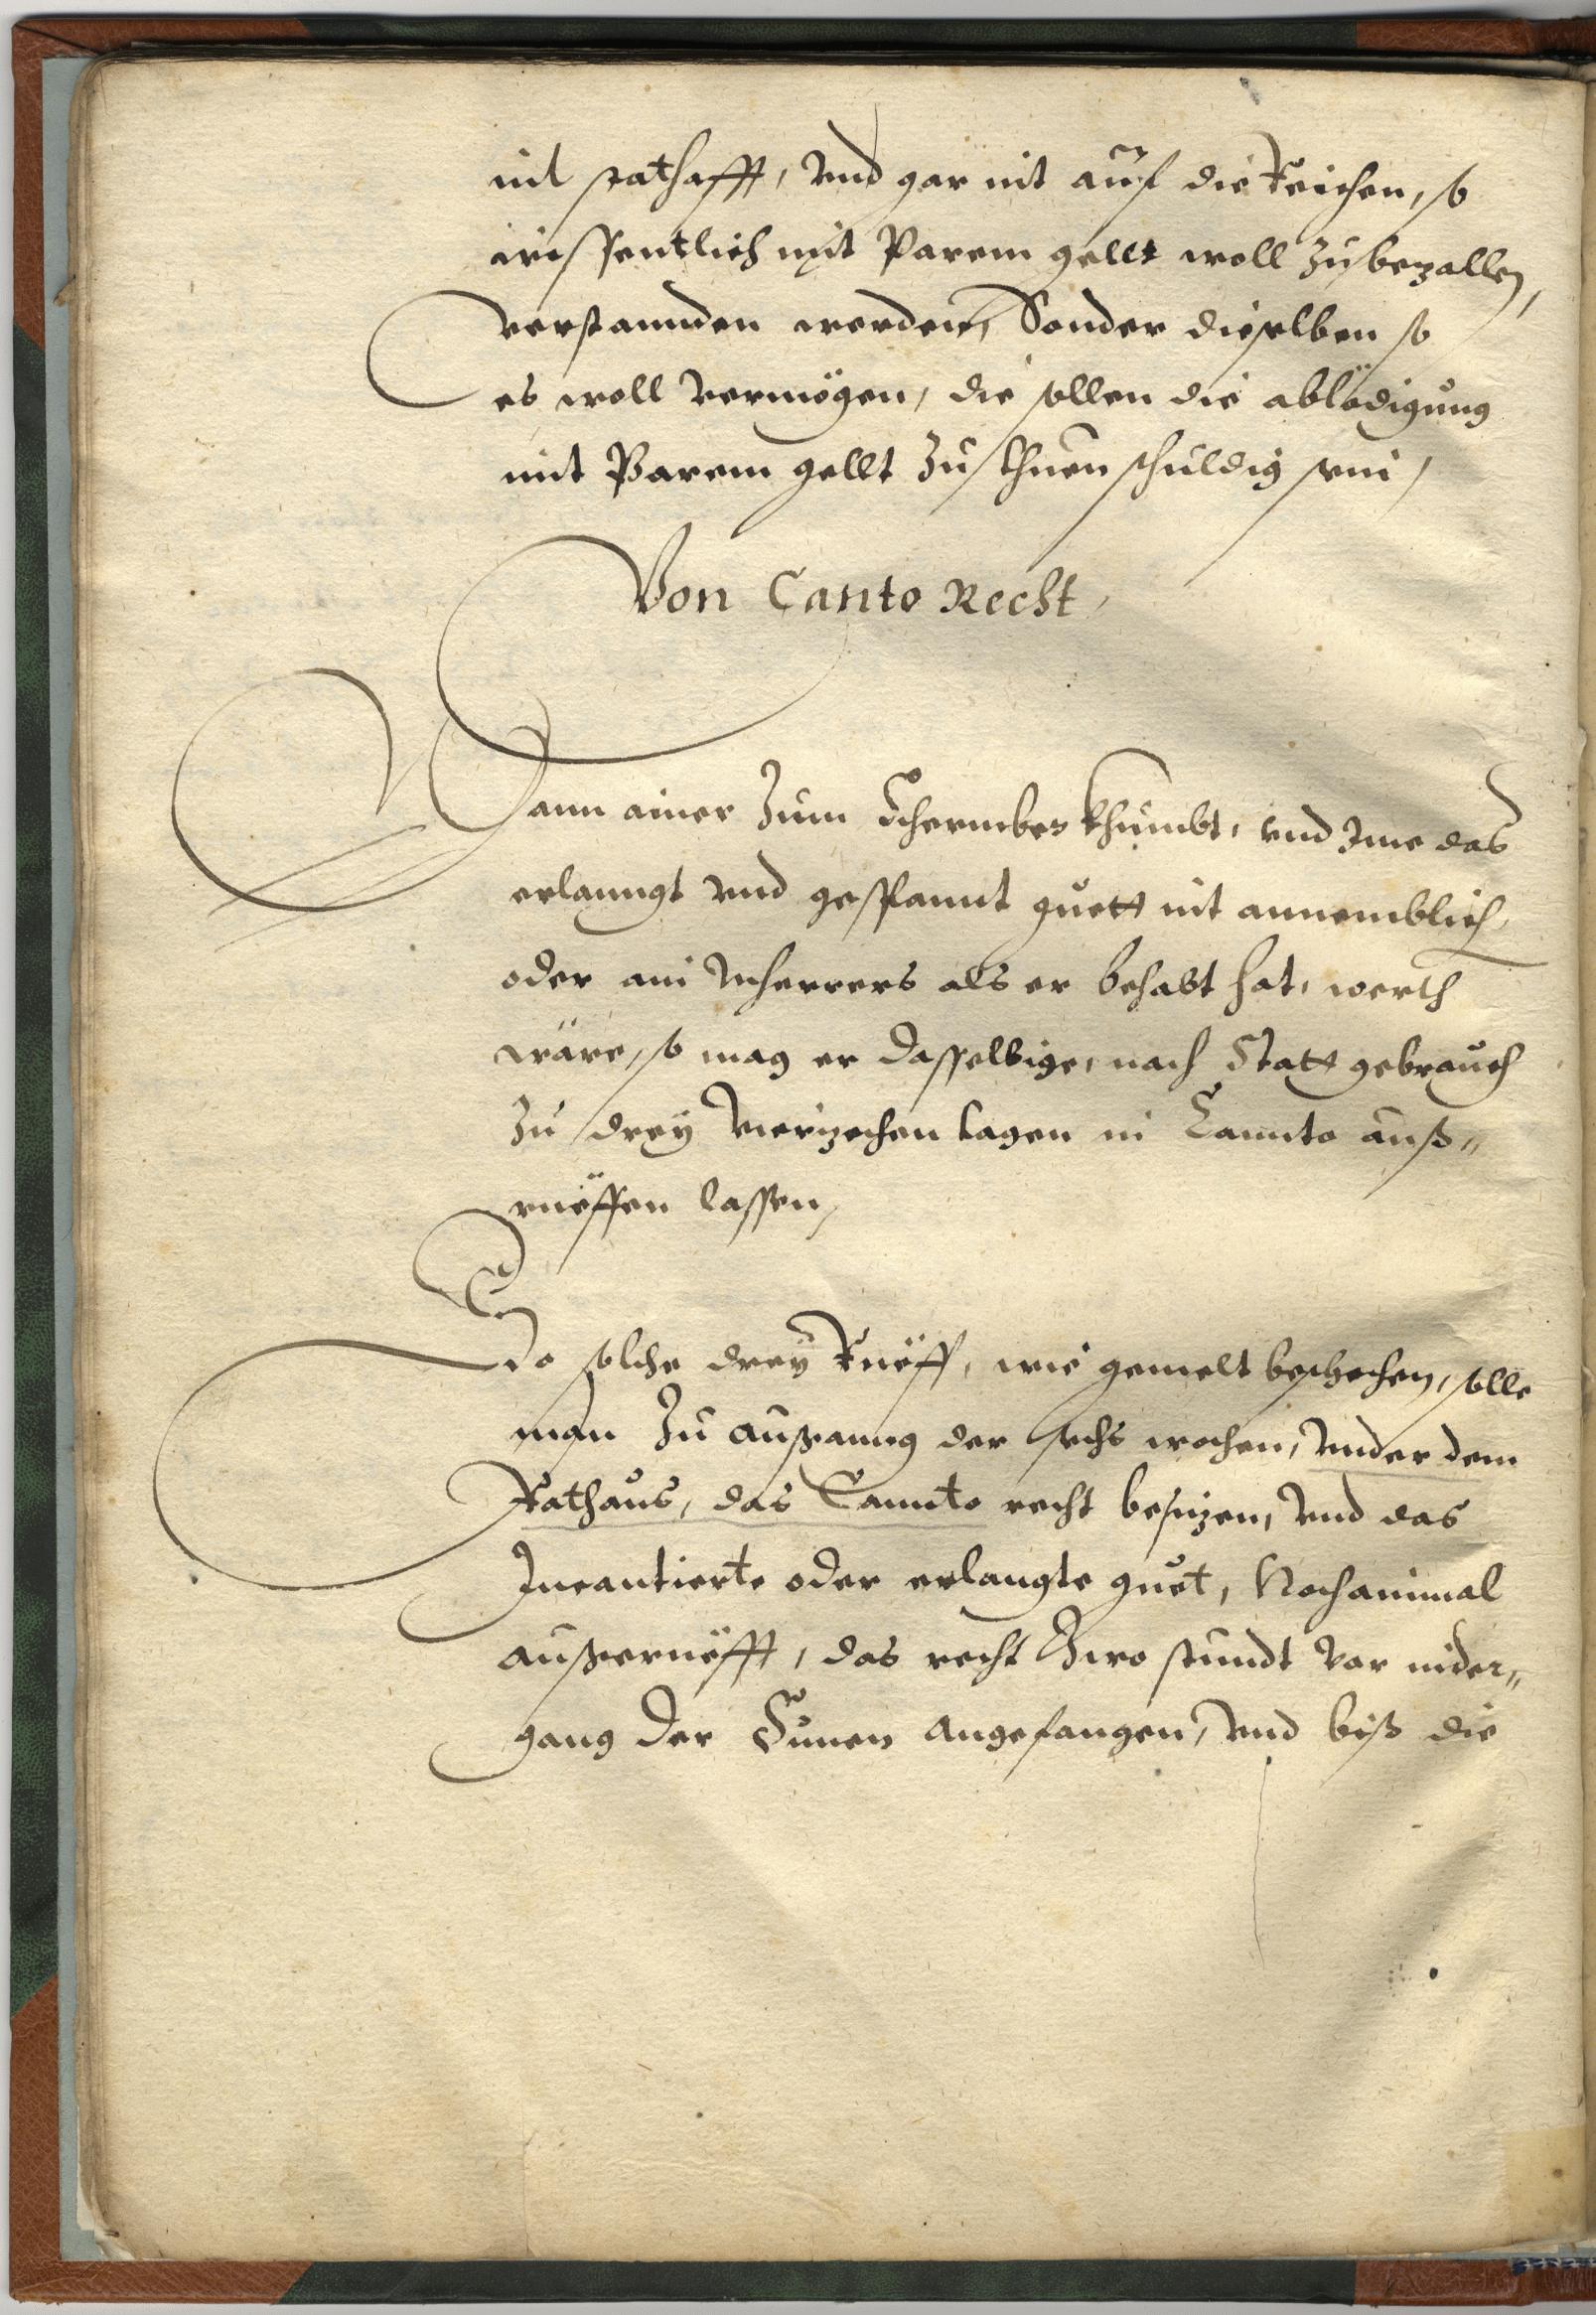 nit stathafft, vnd gar nit auf die Reichen, so
wissentlich mit Parem gellt woll zubezallen,
verstannden werden, Sonder dieselben so
es woll vermögen, die sollen die ablödigung
mit Parem gellt zu thuen schuldig sein,
Von Canto Recht,
Wann ainer zum Schermber khumbt, vnd Ime das
erlanngt vnd gespannt guett nit annemblich,
oder ain mherrers als er behabt hat, werth
wäre, so mag er dasselbige, nach Statt gebrauch
zu drey vierzechen tagen in Cannto auß„
rueffen lassen,
Do solche drey Rueff, wie gemelt beschechen, solle
man zu außganng der sechs wochen, vnder dem
Rathaus, das Cannto recht besizen, vnd das
Incantierte oder erlangte guet, Nochainmal
außgeruefft, das recht Zwo stundt vor nider„
gang der Sunen angefangen, vnd biß die